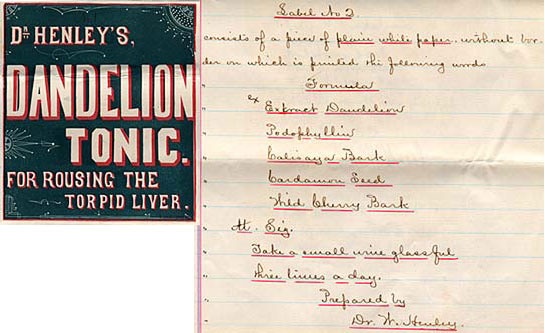 DR HENLEY'S,
DANDELION
TONIC.
FOR ROUSING THE
TORPID LIVER.
Label No 2.
consists of a piece of plain white paper without bor-
der on which is printed the following words
" Formula
" ex Extract Dandelion
" Podophyllin
" Calisaya Bark
" Cardamon Seed
" Wild Cherry Bark
" Sig.
" Take a small wine glassful
" three times a day.
" Prepared by
" Dr. W. Henley.